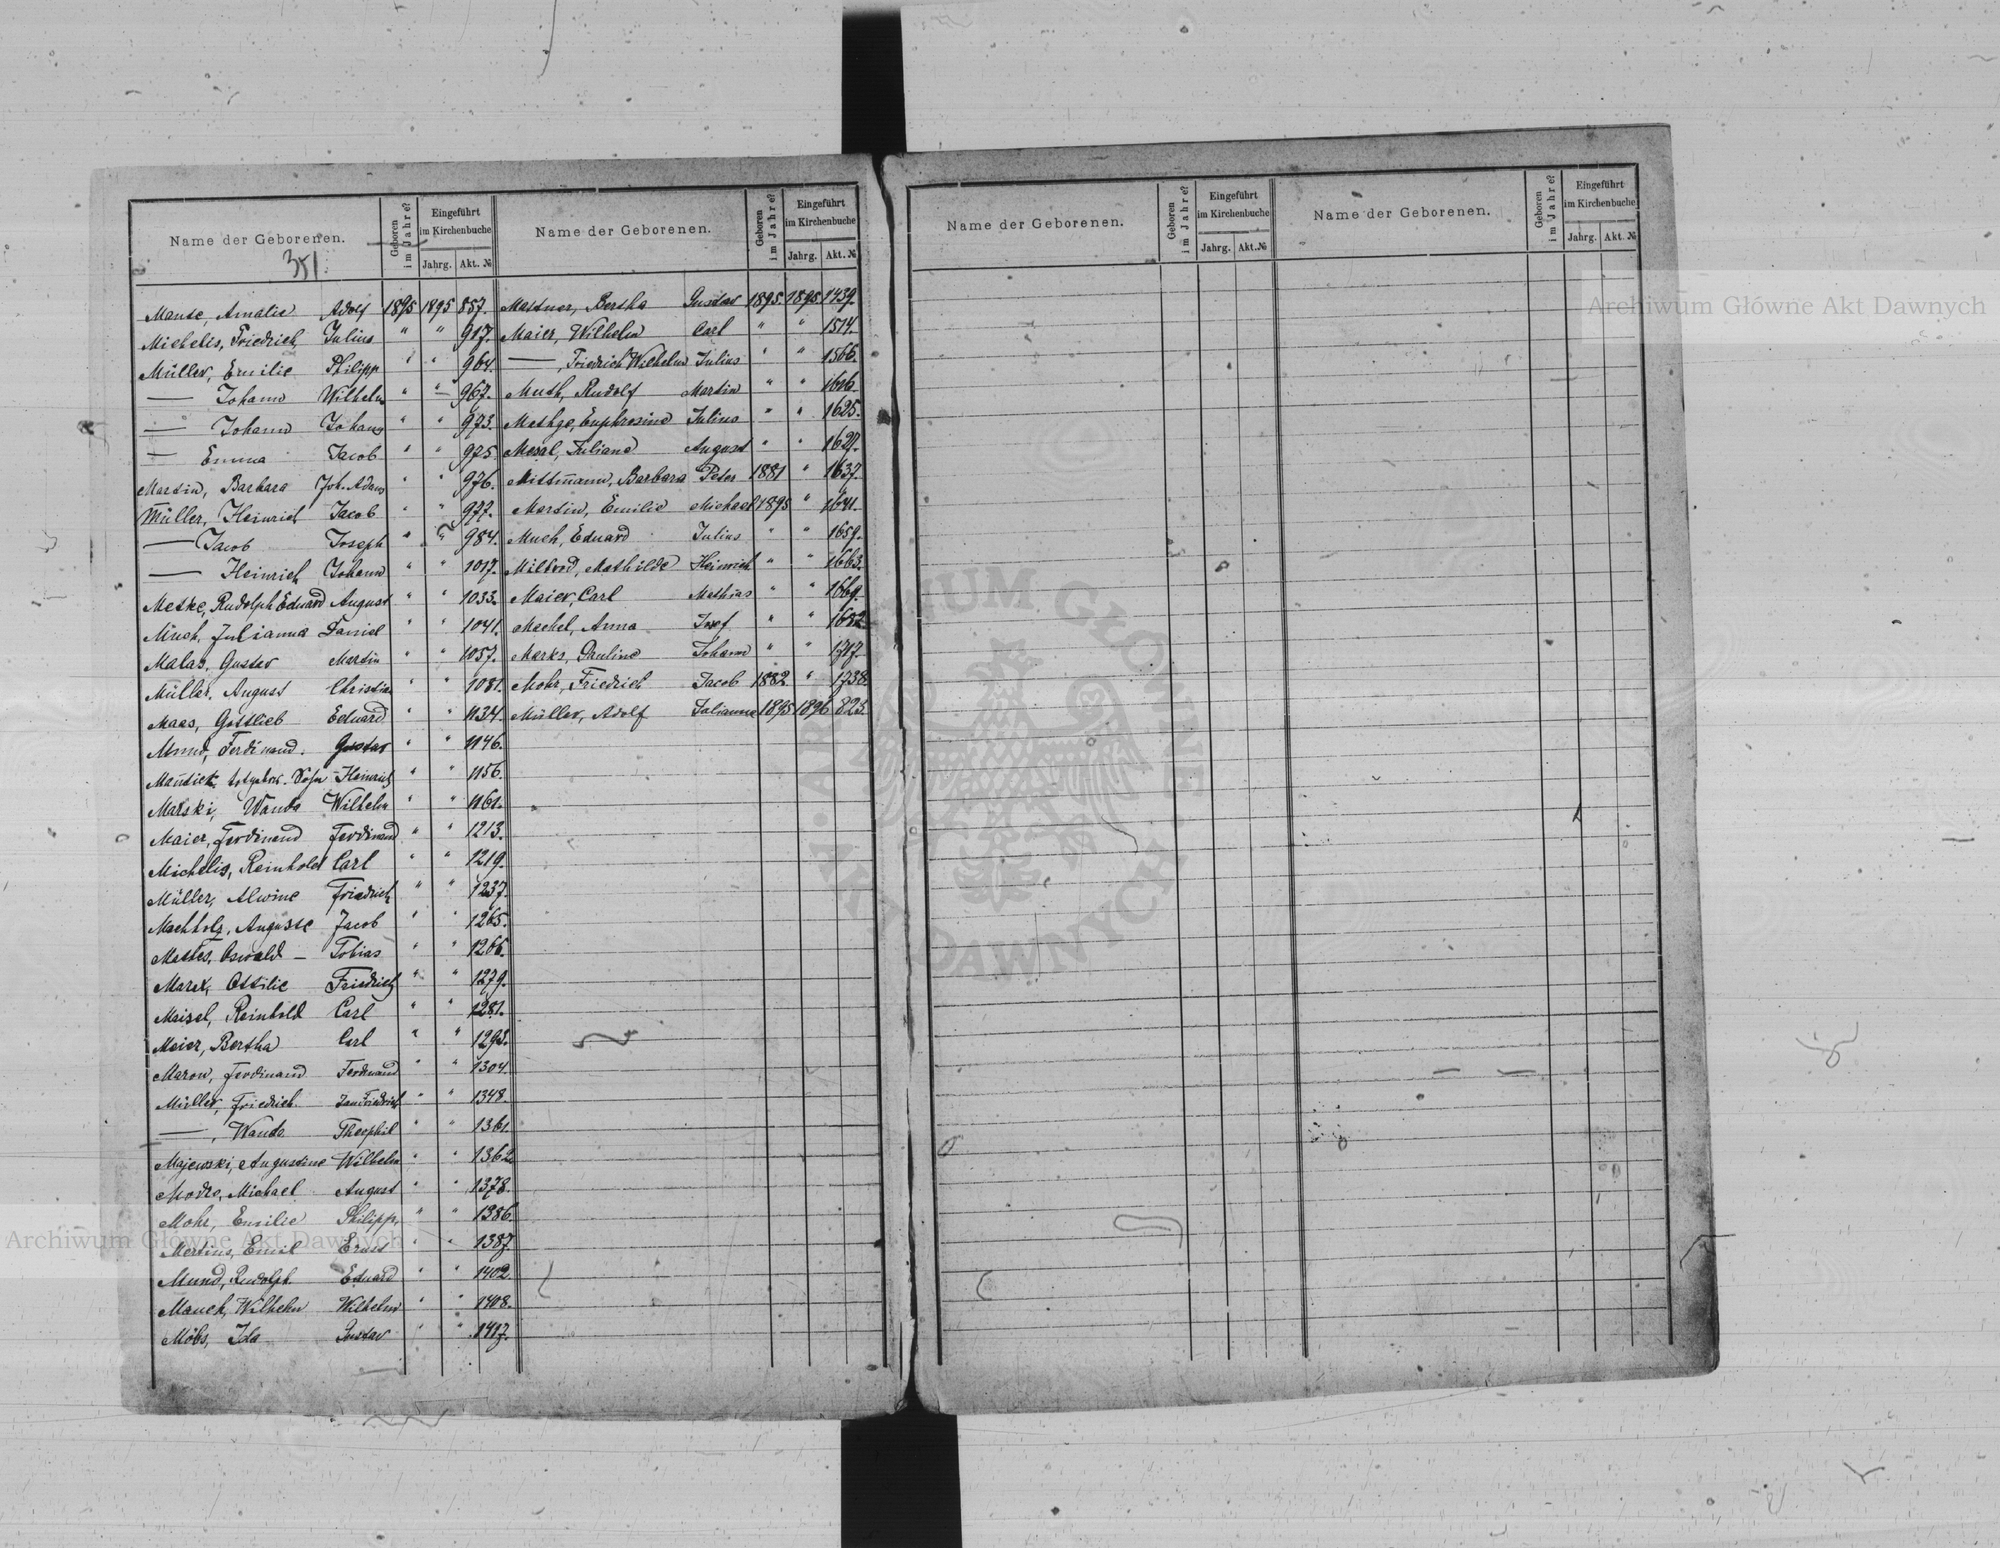 Name der Geborenen.
Geboren im Jahre?
Eingeführt im Kirchenbuche
Jahrg. Akt. №
Name der Geborenen.
Geboren im Jahre?
Eingeführt im Kirchenbuche
Jahrg. Akt. №
351.
Manse, Amalie Adolf 1895 1895 857.
Michelis, Friedrich Julius " " 917.
Müller, Emilie Philipp " " 964.
— Johann Wilhelm " " 967.
— Johann Johann " " 973.
— Emma Jacob " " 975
Martin, Barbara Joh. Adam " " 976.
Müller, Heinrich Jacob " " 977.
— Jacob Joseph " " 984.
— Heinrich Johann " " 1017.
Metke, Rudolph Eduard August " " 1033.
Much, Julianna Daniel " " 1041.
Malas, Gustav Martin " " 1057.
Müller, August Christian " " 1081.
Maas, Gottlieb Eduard " " 1134.
Mund, Ferdinand. Gustav " " 1146.
Heinrich " " 1156.
Marski, Wanda Wilhelm " " 1161.
Maier, Ferdinand Ferdinand " " 1213.
Michelis, Reinhold Carl " " 1219.
Müller, Alwine Friedrich " " 1237.
Machholz, Auguste Jacob " " 1265.
Mattes, Oswald — Tobias " " 1266.
Marx, Ottilie Friedrich " " 1279.
Maisel, Reinhold Carl " " 1281.
Meier, Bertha Carl " " 1293.
Maron, Ferdinand Ferdinand " " 1304.
Müller, Friedrich Jan Friedrich " " 1348.
—, Wanda Theophil " " 1361.
Majewski, Augustine Wilhelm " " 1362.
Modre, Michael August " " 1378.
Mohr, Emilie Philipp. " " 1386.
Mertins, Emil Ernst " " 1387.
Mund, Rudolph Eduard " " 1402.
Mauch, Wilhelm Wilhelm " " 1408.
Möbs, Ida Gustav " " 1417.
Mastner, Bertha Gustav 1895. 1895. 1439.
Maier, Wilhelm Carl " " 1514.
—, Friedrich Wilhelm Julius " " 1566.
Muth, Rudolf Martin " " 1616.
Methge, Euphrosine Julius " " 1625.
Mesal, Juliana August " " 1627.
Mittmann, Barbara Peter 1881 " 1637.
Martin, Emilie Michael 1895 " 1641.
Much, Eduard Julius " " 1659.
Milbrod, Mathilde Heinrich " " 1663.
Maier, Carl Mathias " " 1669.
Machel, Anna Josef " " 1682.
Marks, Pauline Johann " " 1717.
Mohr, Friedrich Jacob 1882. " 1738.
Müller, Adolf Julianne 1895 1896 823.
Name der Geborenen.
Geboren im Jahre?
Eingeführt im Kirchenbuche
Jahrg. Akt. №
Name der Geborenen.
Geboren im Jahre?
Eingeführt im Kirchenbuche
Jahrg. Akt. №
Archiwum Główne Akt Dawnych
Archiwum Główne Akt Dawnych
ARCHIWUM GŁÓWNE AKT DAWNYCH